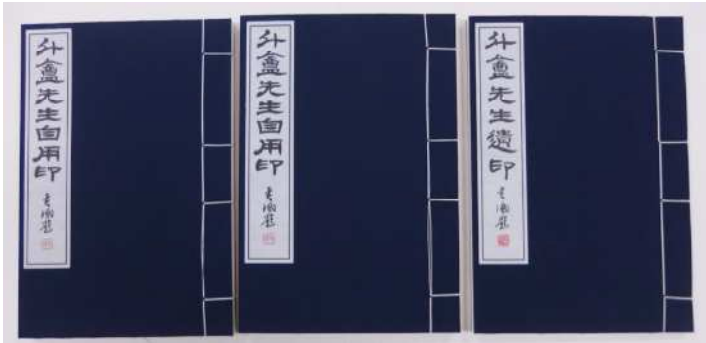 斗盦先生自用印
斗盦先生自用印
斗盦先生遺印